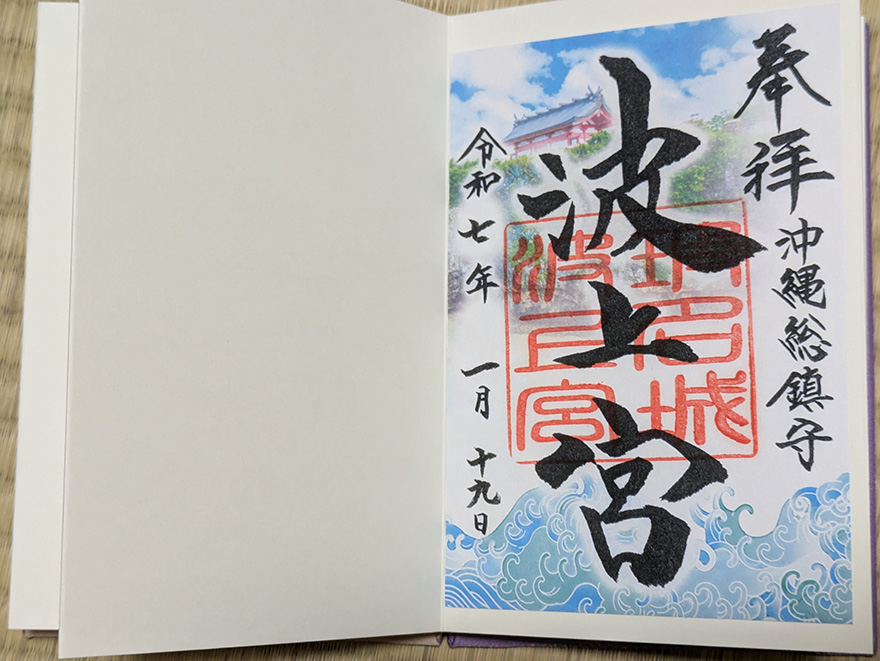 奉拝
沖縄総鎮守
波上宮
琅名城
波上宮
令和七年 一月 十九日